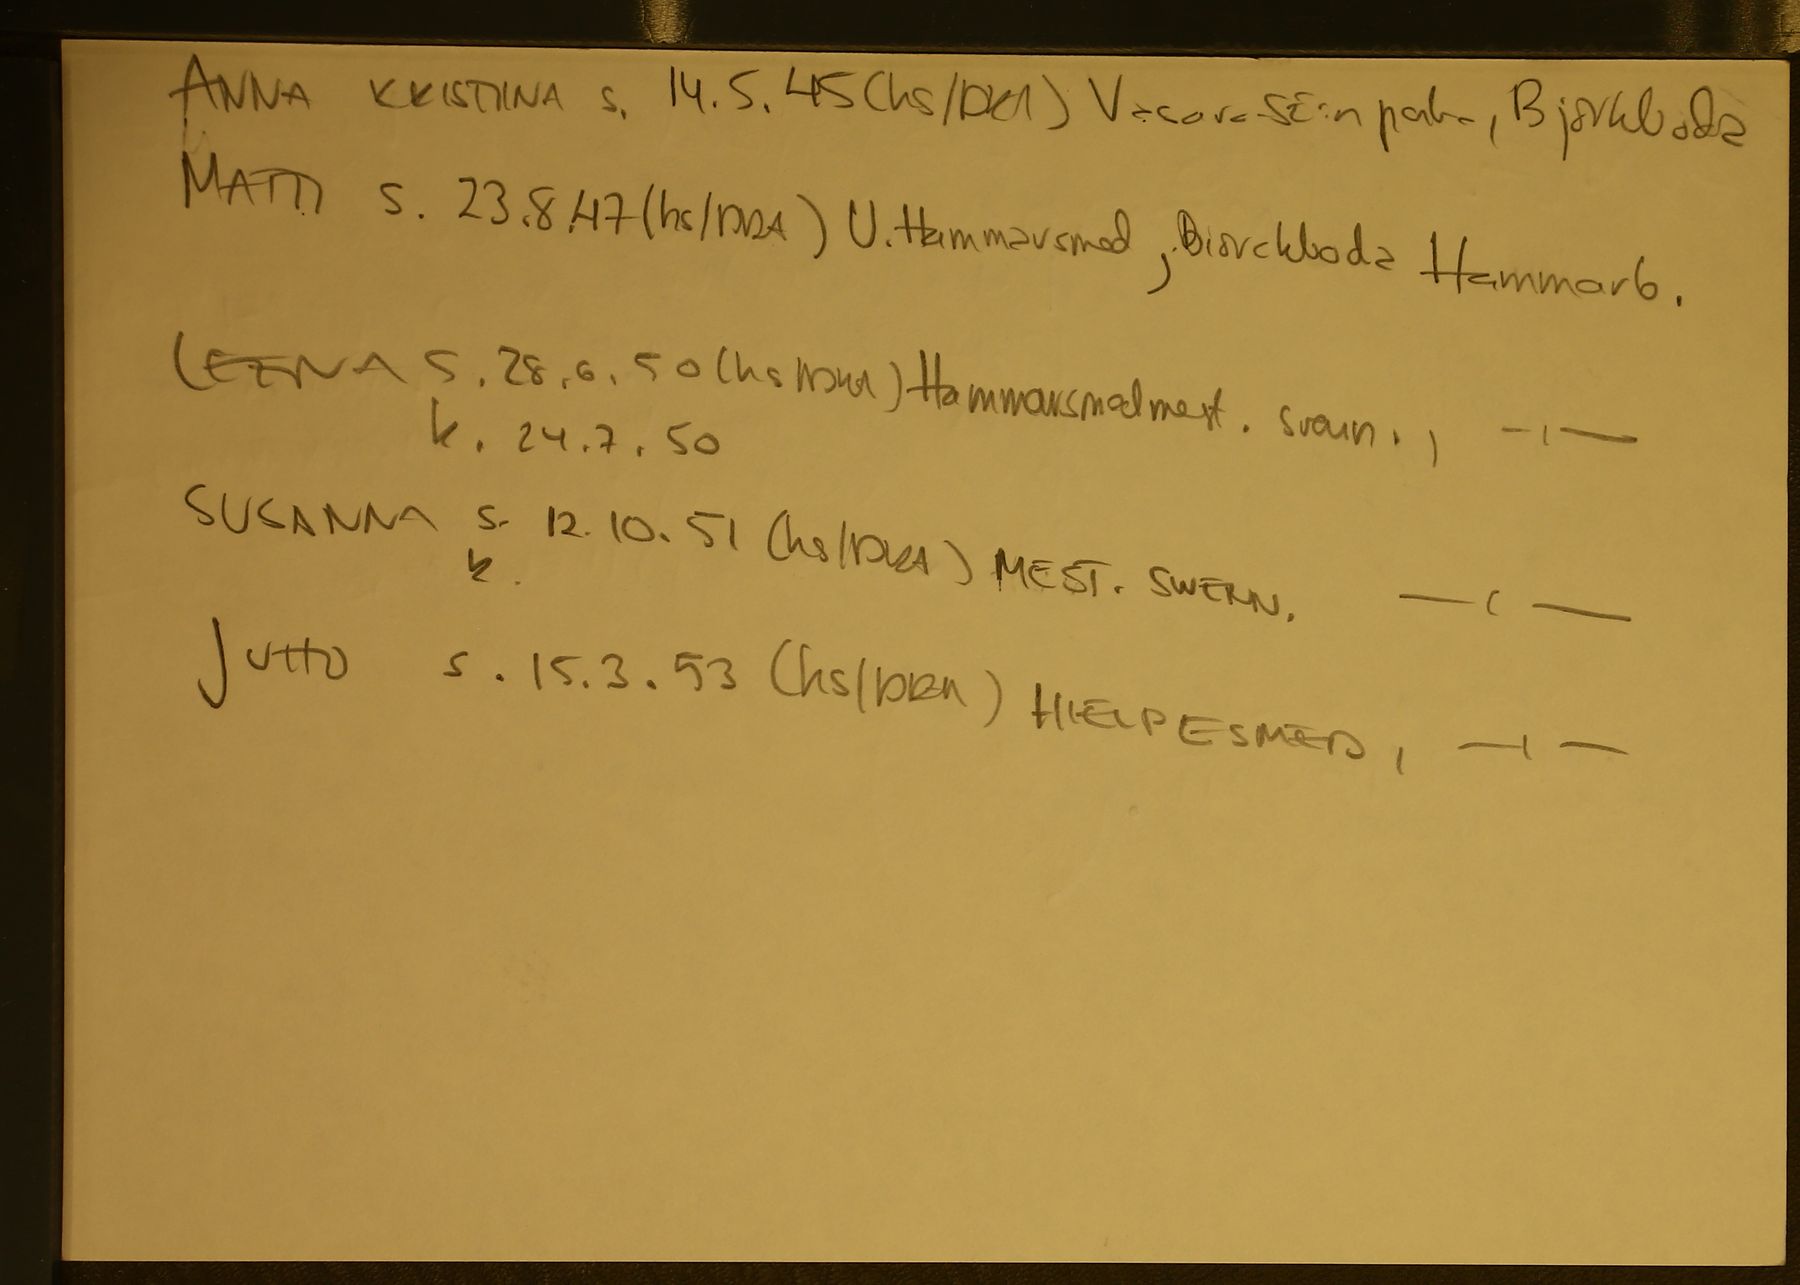 ANNA KRISTIINA s. 14.5.45 (hs/DKA) Vasarasepän, Björkboda
MATTI s. 23.8.47 (hs/DKA) U. Hammarsmed, Biörckboda Hammarb.
LEENA s. 28.6.50 (hs/DKA) Hammarsmedmest. svenn., —ı—
k. 24.7.50
SUSANNA s. 12.10.51 (hs/DKA) MEST. SWENN. —ı—
k.
Jutto s. 15.3.53 (hs/DKA) HIELPESMED, —ı—